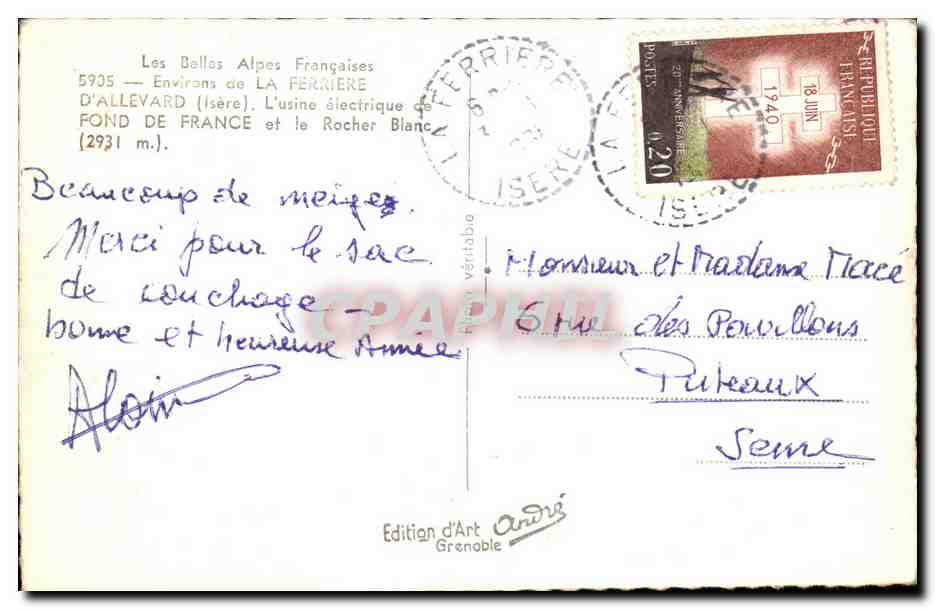 Les Belles Alpes Françaises
5905 — Environs de LA FERRIERE
D'ALLEVARD (Isère). L'usine électrique de
FOND DE FRANCE et le Rocher Blanc
(2931 m.).
Beaucoup de neige.
Merci pour le sac
de couchage —
bonne et heureuse Année
Alain
LA FERRIERE
ISERE
LA FE
ISERE
REPUBLIQUE
FRANÇAISE
18 JUIN
1940
20e ANNIVERSAIRE
POSTES
0,20
Photo véritable
Monsieur et Madame Macé
6 rue des Pavillons
Puteaux
Seine
CPAPHIL
Edition d'Art André
Grenoble